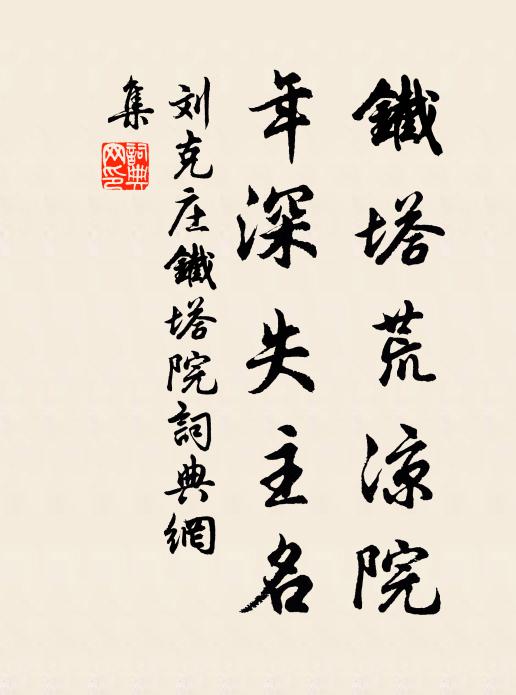 鐵塔荒凉院
年深失主名
刘克庄鐵塔院詞典網
集
詞典网印